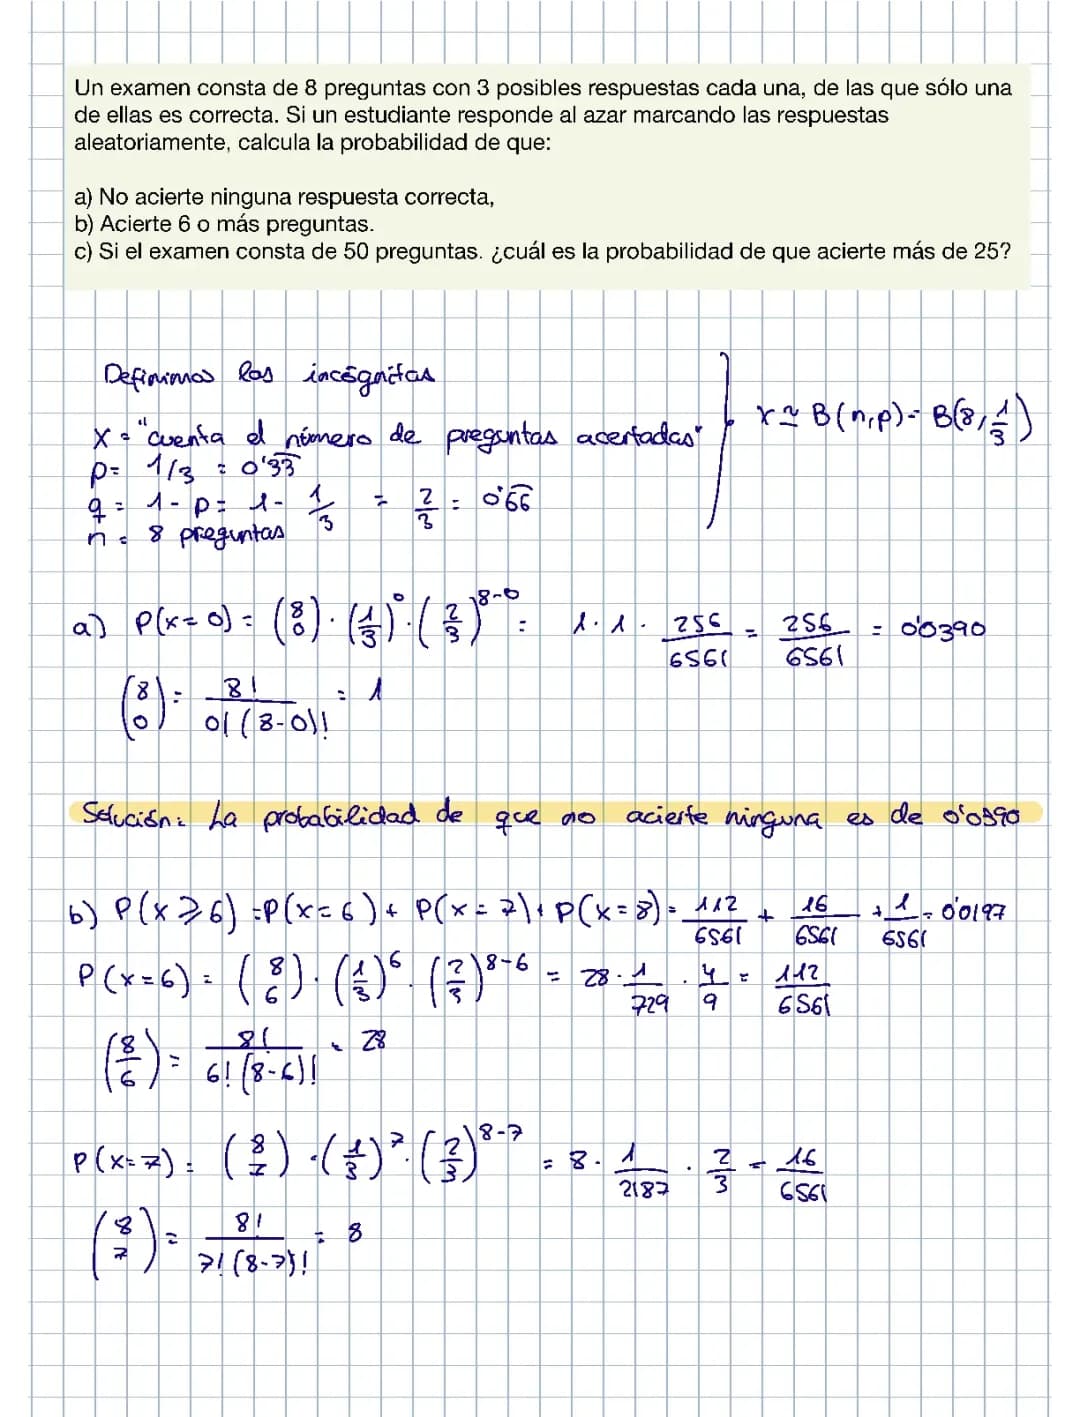 Un examen consta de 8 preguntas con 3 posibles respuestas cada una, de las que sólo una
de ellas es correcta. Si un estudiante responde al azar marcando las respuestas
aleatoriamente, calcula la probabilidad de que:
a) No acierte ninguna respuesta correcta,
b) Acierte 6 o más preguntas.
c) Si el examen consta de 50 preguntas. ¿cuál es la probabilidad de que acierte más de 25?
Definimos las incógnitas
X = "cuenta el número de preguntas acertadas"
x ≃ B(n,p) = B(8, 1/3)
p = 1/3 = 0'33
q = 1 - p = 1 - 1/3 = 2/3 = 0'66
n = 8 preguntas
a) P(x=0) = (8 0) · (1/3)^0 · (2/3)^8-0 = 1 · 1 · 256/6561 = 256/6561 = 0'0390
(8 0) = 8!/0!(8-0)! = 1
Solución: La probabilidad de que no acierte ninguna es de 0'0390
b) P(x⩾6) = P(x=6) + P(x=7) + P(x=8) = 112/6561 + 16/6561 + 1/6561 = 0'0197
P(x=6) = (8 6) · (1/3)^6 · (2/3)^8-6 = 28 · 1/729 · 4/9 = 112/6561
(8/6) = 8!/6!(8-6)! = 28
P(x=7) = (8 7) · (1/3)^7 · (2/3)^8-7 = 8 · 1/2187 · 2/3 = 16/6561
(8 7) = 8!/7!(8-7)! = 8